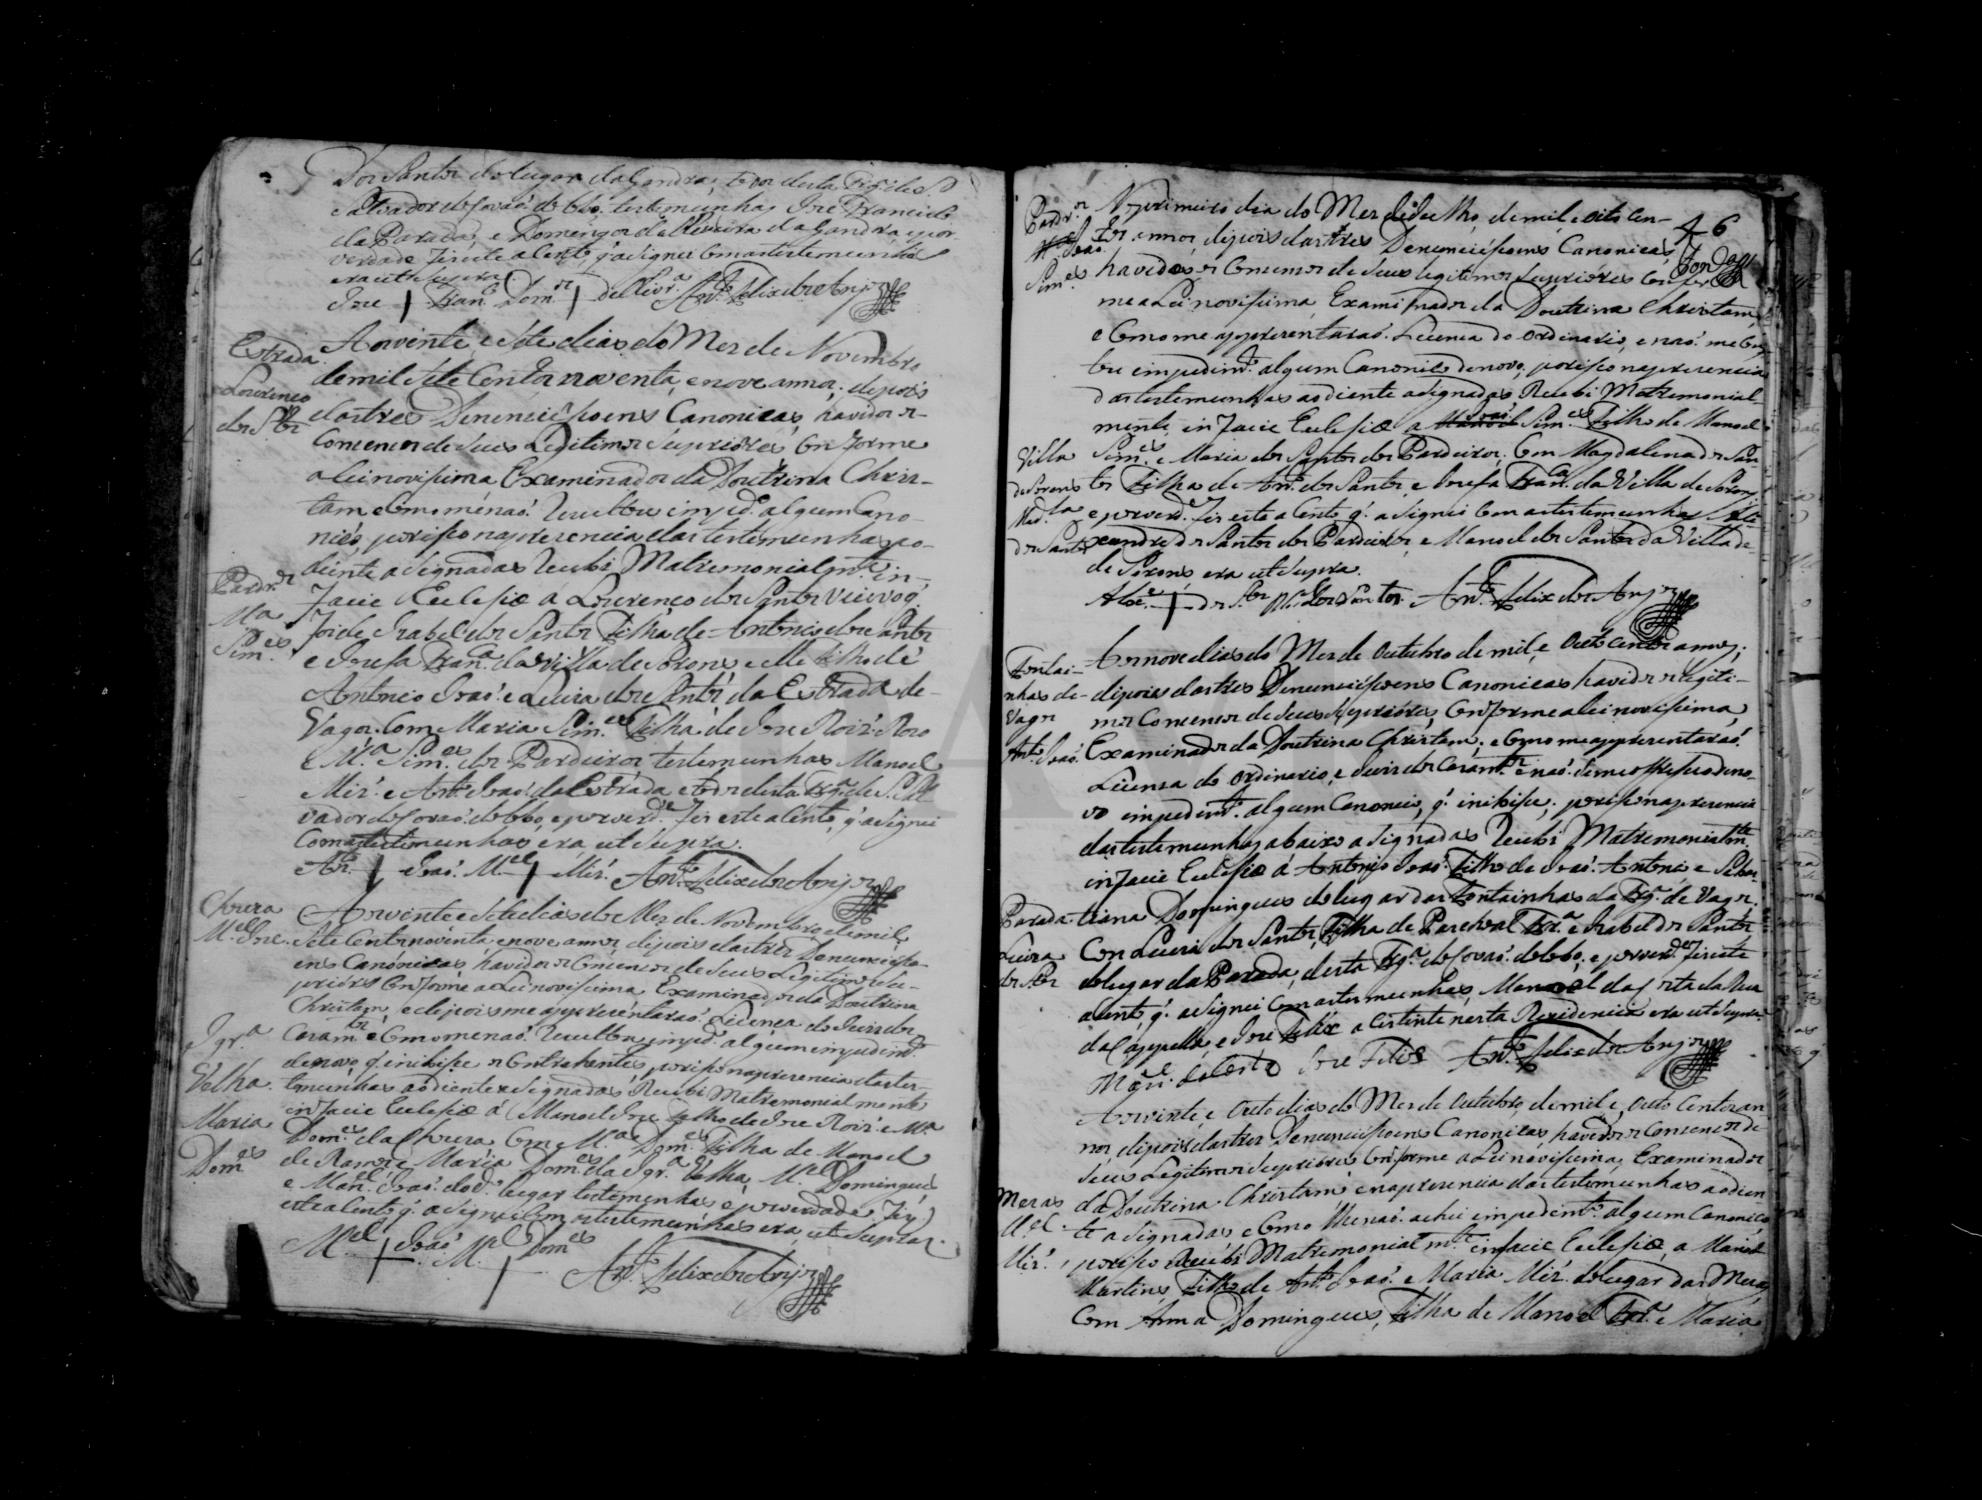 Dos Santos do lugar da Gandra, todos desta Frg.ª de S.
Salvador de Covaõ do Lobo, testemunhas Jose Francisco
da Parada, e Domingos de Oliveira da Gandra e por
verdade fis este aCento q̃ aSignei Com as testemunhas
era ut Supra
Jose Fran.co Dom.os de Olivr.ª Ant.º Felix dos Anjos
Estrada
Lourenço
dos S.tos
Aos vinte e Séte dias do Mes de Novembro
de mil Séte Centos noventa, e nove annos, depois
das tres Denunciaçoens Canonicas, havidos os
Concensos de Seus Legitimos Superiores Conforme
a Lei novissima Examinados da Doutrina Chris-
tam e Como me naõ Rezultou impid.º algum Cano-
nico, por isso na prezencia das testemunhas ao
diente aSignadas Recebi Matremonialm.te in
Pardr.os
M.ª
Sim.es
Facie Ecclesiæ a Lourenço dos Santos Viuvo q̃
foi de Izabel dos Santos Filha de Antonio dos Santos
e Josefa Fran.ca da Villa de Sorens e elle Filho de
Antonio Joaõ e Luiza dos Santos da Estrada de
Vagos. Com Maria Sim.es Filha de Jose Roiz Novo
e M.ª Sim.es dos Pardieiros testemunhas Manoel
Miz. e Ant.º Joaõ da Estrada e todos desta Frg.ª de S. Sal
vador de Covaõ do Lobo, e por verd.e Fis este aCento, q̃ aSignei
Com as testemunhas, era ut Supra.
An.to Joaõ. M.el Miz. Ant.º Felix dos Anjos
Choza
M.el Jose.
Aos vinte e Sete dias do Mez de Novembro de mil,
Sete Centos noventa, e nove annos, depois das tres Denunciaço-
ens Canónicas, havidos os Concensos de Seus Legitimos Su-
periores Conforme a Lei novissima Examinados da Doutrina
Christam, e depois me apprezéntaraõ Licença do Juis dos
Igr.ª
Cazam.tos e Como me naõ Rezultou impid.º algum impedim.to
de novo, q̃ inibisse os Contrahentes, por isso na prezencia das tes-
Velha
temunhas adiente aSignadas Recebi Matremonialmente
Maria
in Facie Ecclesiæ á Manoel Jose Filho de Jose Roiz e M.ª
Dom.es
Dom.es da Choza Com M.ª Dom.es Filha de Manoel
de Ramos e Maria Dom.es da Igr.ª Velha, M.el Domingues
e Man.el Joaõ do d.º lugar testemunhas e por verdade Fiz
este aCento q̃ aSignei Com as testemunhas era ut Supra.
M.el Joaõ M.el Dom.es
Ant.º Felix dos Anjos
46
Pardr.os
Joaõ
Sim.es
No primeiro dia do Mes de Julho, de mil, e oito Cen-
tos annos, depois das tres Denunciaçoens Canonicas,
havidos os Concensos de Seus legitimos Superiores Confor
me a Lei novissima, Examinados da Doutrina Christam,
e Como me apprezentaraõ Licensa do Ordinario, e naõ me Cons
tou impedim.to algum Canonico de novo, por isso na prezencia
das testemunhas ao diente aSignadas Recebi Matremonial-
mente in Facie Ecclesiæ a Manoel Joaõ Sim.es Filho de Manoel
Villa
de Sorens
Mad.lª
dos Santos
Sim.es e Maria dos Santos dos Pardieiros, Com Magdalena dos San-
tos Filha de Ant.º dos Santos e Josefa Fran.ca da Villa de Sorens,
e por verd.e fis este aCento q̃ aSignei Com as testemunhas Ale-
xandre dos Santos dos Pardieiros, e Manoel dos Santos da Villa de
de Sorens, era ut Supra.
Alex.e dos S.tos M.el dos Santos Ant.º Felix dos Anjos
Fontai-
nhas de
Vagos
Ant.º Joaõ
Aos nove dias do Mes de Outubro de mil, e Outo Centos annos,
depois das tres Denunciaçoens Canonicas havidos os legiti-
mos Concensos de Seus Superiores, Conforme a lei novissima,
Examinados da Doutrina Christam, e Como me apprezentaraõ
Licensa do Ordinario, e Juis dos Cazam.tos e naõ Se me offreçeo de no-
vo impedim.to algum Canonico, q̃ inibisse, por isso na prezencia
das testemunhas abaixo aSignadas Recebi Matremonialm.te
in Facie Ecclesiæ á Antonio Joaõ Filho de Joaõ Antonio e Sebas-
Parada
Luiza
dos S.tos
tiana Domingues do lugar das Fontainhas da Frg.ª de Vagos.
Com Luiza dos Santos, Filha de Pascoal Frr.ª e Izabel dos Santos
do lugar da Parada, desta Frg.ª de Covaõ do Lobo, e por verd.e fis este
aCento q̃ aSignei Com as testemunhas, Manoel da Costa da Rua
da Cappella, e Jose Felix aCestente nesta Rezidencia era ut Supra.
M.el da Costa Jose Felix Ant.º Felix dos Anjos
Aos vinte, e Outo dias do Mes de Outubro, de mil e Outo Centos an-
nos depois das tres Denunciaçoens Canonicas, havidos os Concensos de
Seus Legitimos Superiores Conforme a Lei novissima, Examinados
Mezas
M.el
Miz.
da Doutrina Christam, e na prezencia das testemunhas ao dien
te aSignadas e Como lhe naõ achei impedim.to algum Canonico
por isso Recebi Matremonialm.te in Facie Ecclesiæ, a Manoel
Martins, Filho de Ant.º Joaõ e Maria Miz. do lugar das Mezas,
Com Anna Domingues, Filha de Manoel Frr.ª e Maria